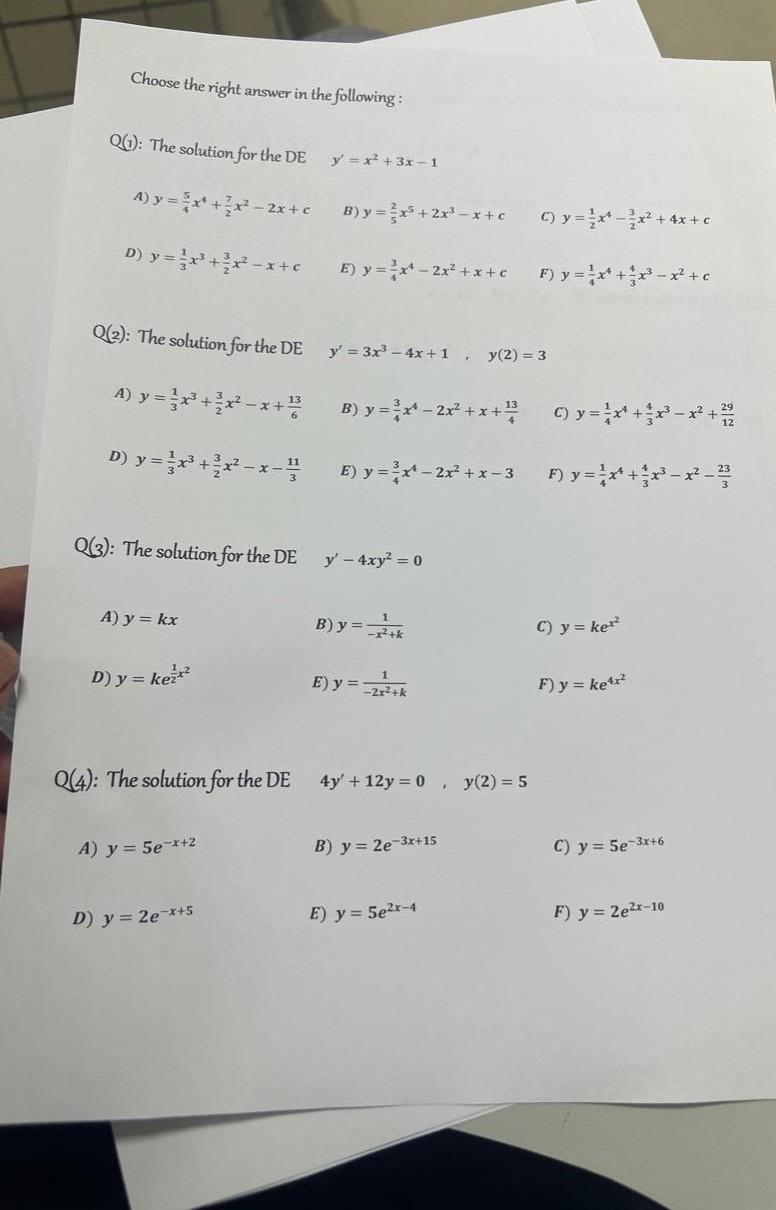 Choose the right answer in the following :
Q(1): The solution for the DE y′ = x² + 3x − 1
A) y = 5/4 x⁴ + 7/2 x² − 2x + c B) y = 2/5 x⁵ + 2x³ − x + c C) y = 1/2 x⁴ − 3/2 x² + 4x + c
D) y = 1/3 x³ + 3/2 x² − x + c E) y = 3/4 x⁴ − 2x² + x + c F) y = 1/4 x⁴ + 4/3 x³ − x² + c
Q(2): The solution for the DE y′ = 3x³ − 4x + 1 , y(2) = 3
A) y = 1/3 x³ + 3/2 x² − x + 13/6 B) y = 3/4 x⁴ − 2x² + x + 13/4 C) y = 1/4 x⁴ + 4/3 x³ − x² + 29/12
D) y = 1/3 x³ + 3/2 x² − x − 11/3 E) y = 3/4 x⁴ − 2x² + x − 3 F) y = 1/4 x⁴ + 4/3 x³ − x² − 23/3
Q(3): The solution for the DE y′ − 4xy² = 0
A) y = kx B) y = 1/(−x²+k) C) y = ke^(x²)
D) y = ke^(1/2 x²) E) y = 1/(−2x²+k) F) y = ke^(4x²)
Q(4): The solution for the DE 4y′ + 12y = 0 , y(2) = 5
A) y = 5e^(−x+2) B) y = 2e^(−3x+15) C) y = 5e^(−3x+6)
D) y = 2e^(−x+5) E) y = 5e^(2x−4) F) y = 2e^(2x−10)